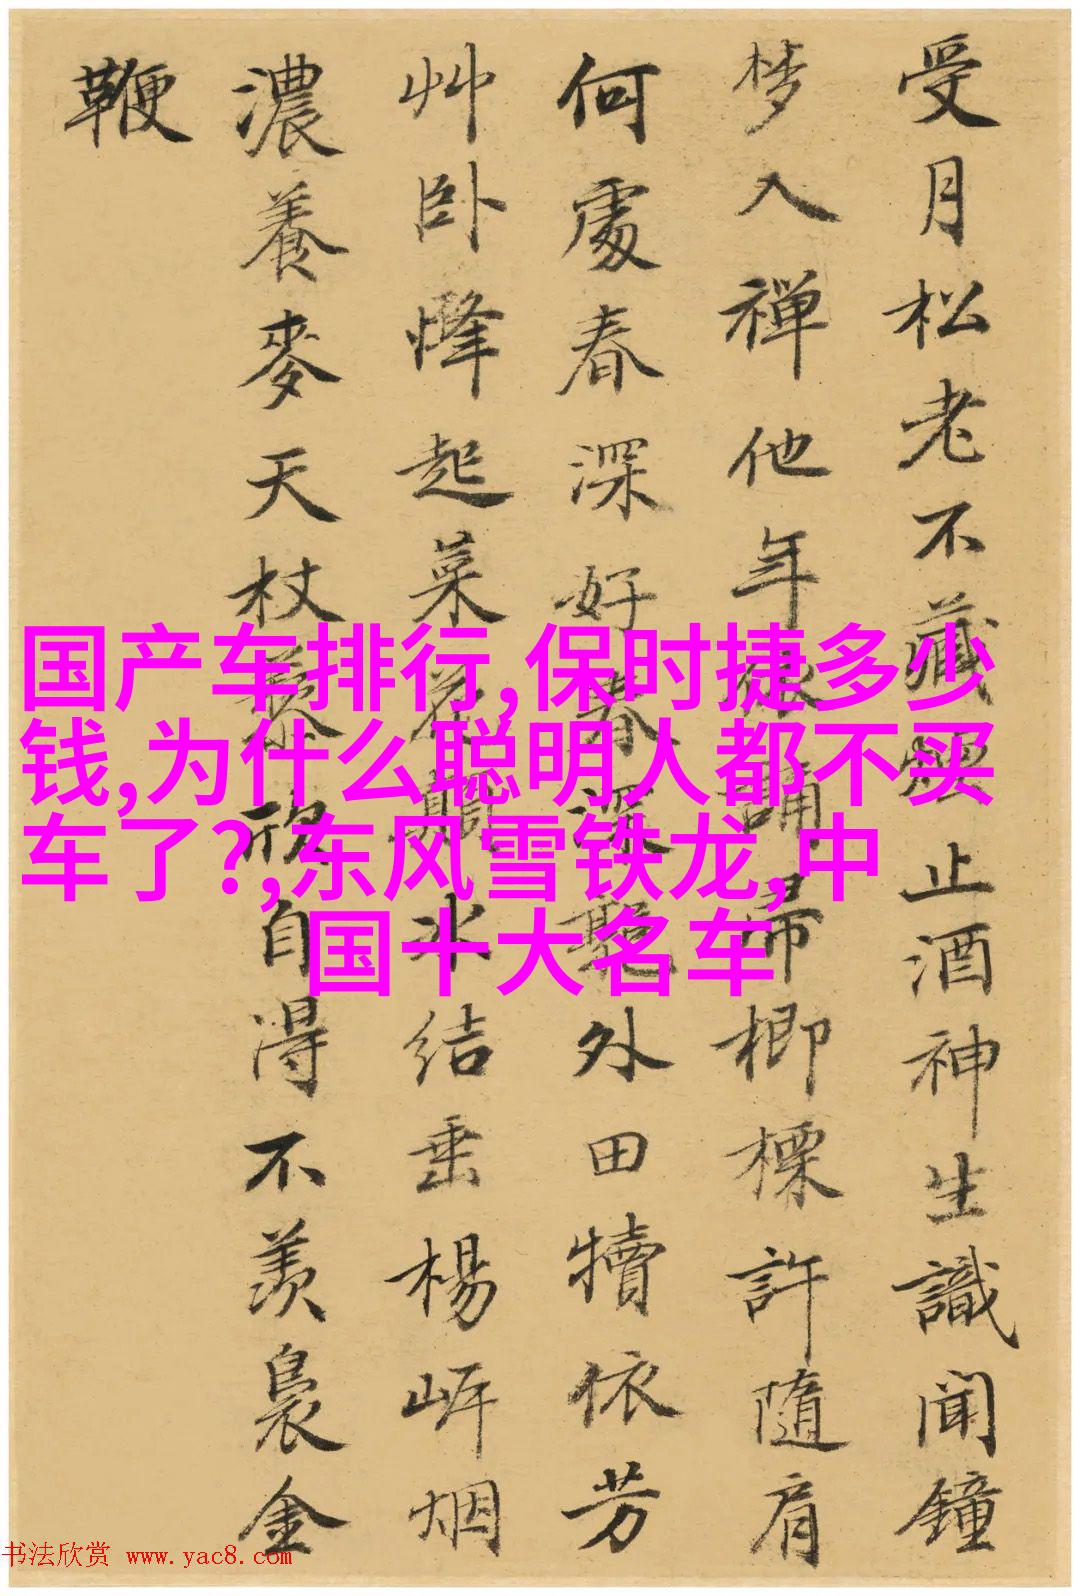 受月松老不藏止酒神生識聞鐘
梦入禅他年誦帰楖㮚許隨肩
何處春深好春深外田犢依芳
艸卧起菜水结垂楊岍烟
濃養麥天杖欣自得不羡裊金
鞭
国产车排行,保时捷多少
钱,为什么聪明人都不买
车了?,东风雪铁龙,中
国十大名车
书法欣赏 www.yac8.com